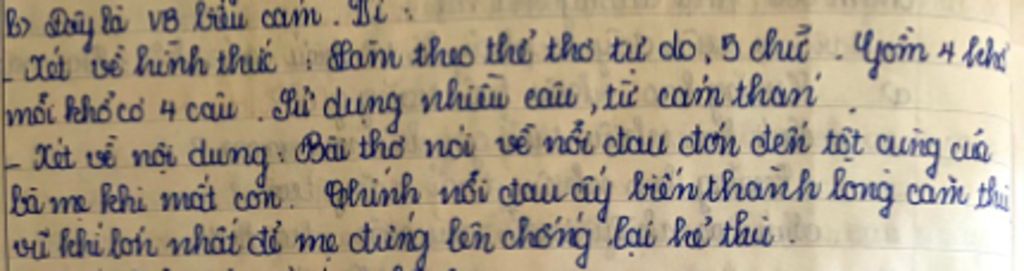 B) Đây là VB biểu cảm. Vì:
- Xét về hình thức: Làm theo thể thơ tự do, 5 chữ. Gồm 4 khổ
mỗi khổ có 4 câu. Sử dụng nhiều câu, từ cảm thán.
- Xét về nội dung: Bài thơ nói về nỗi đau đớn đến tột cùng của
bà mẹ khi mất con. Chính nỗi đau ấy biến thành lòng căm thù
vũ khí lớn nhất để mẹ đứng lên chống lại kẻ thù.